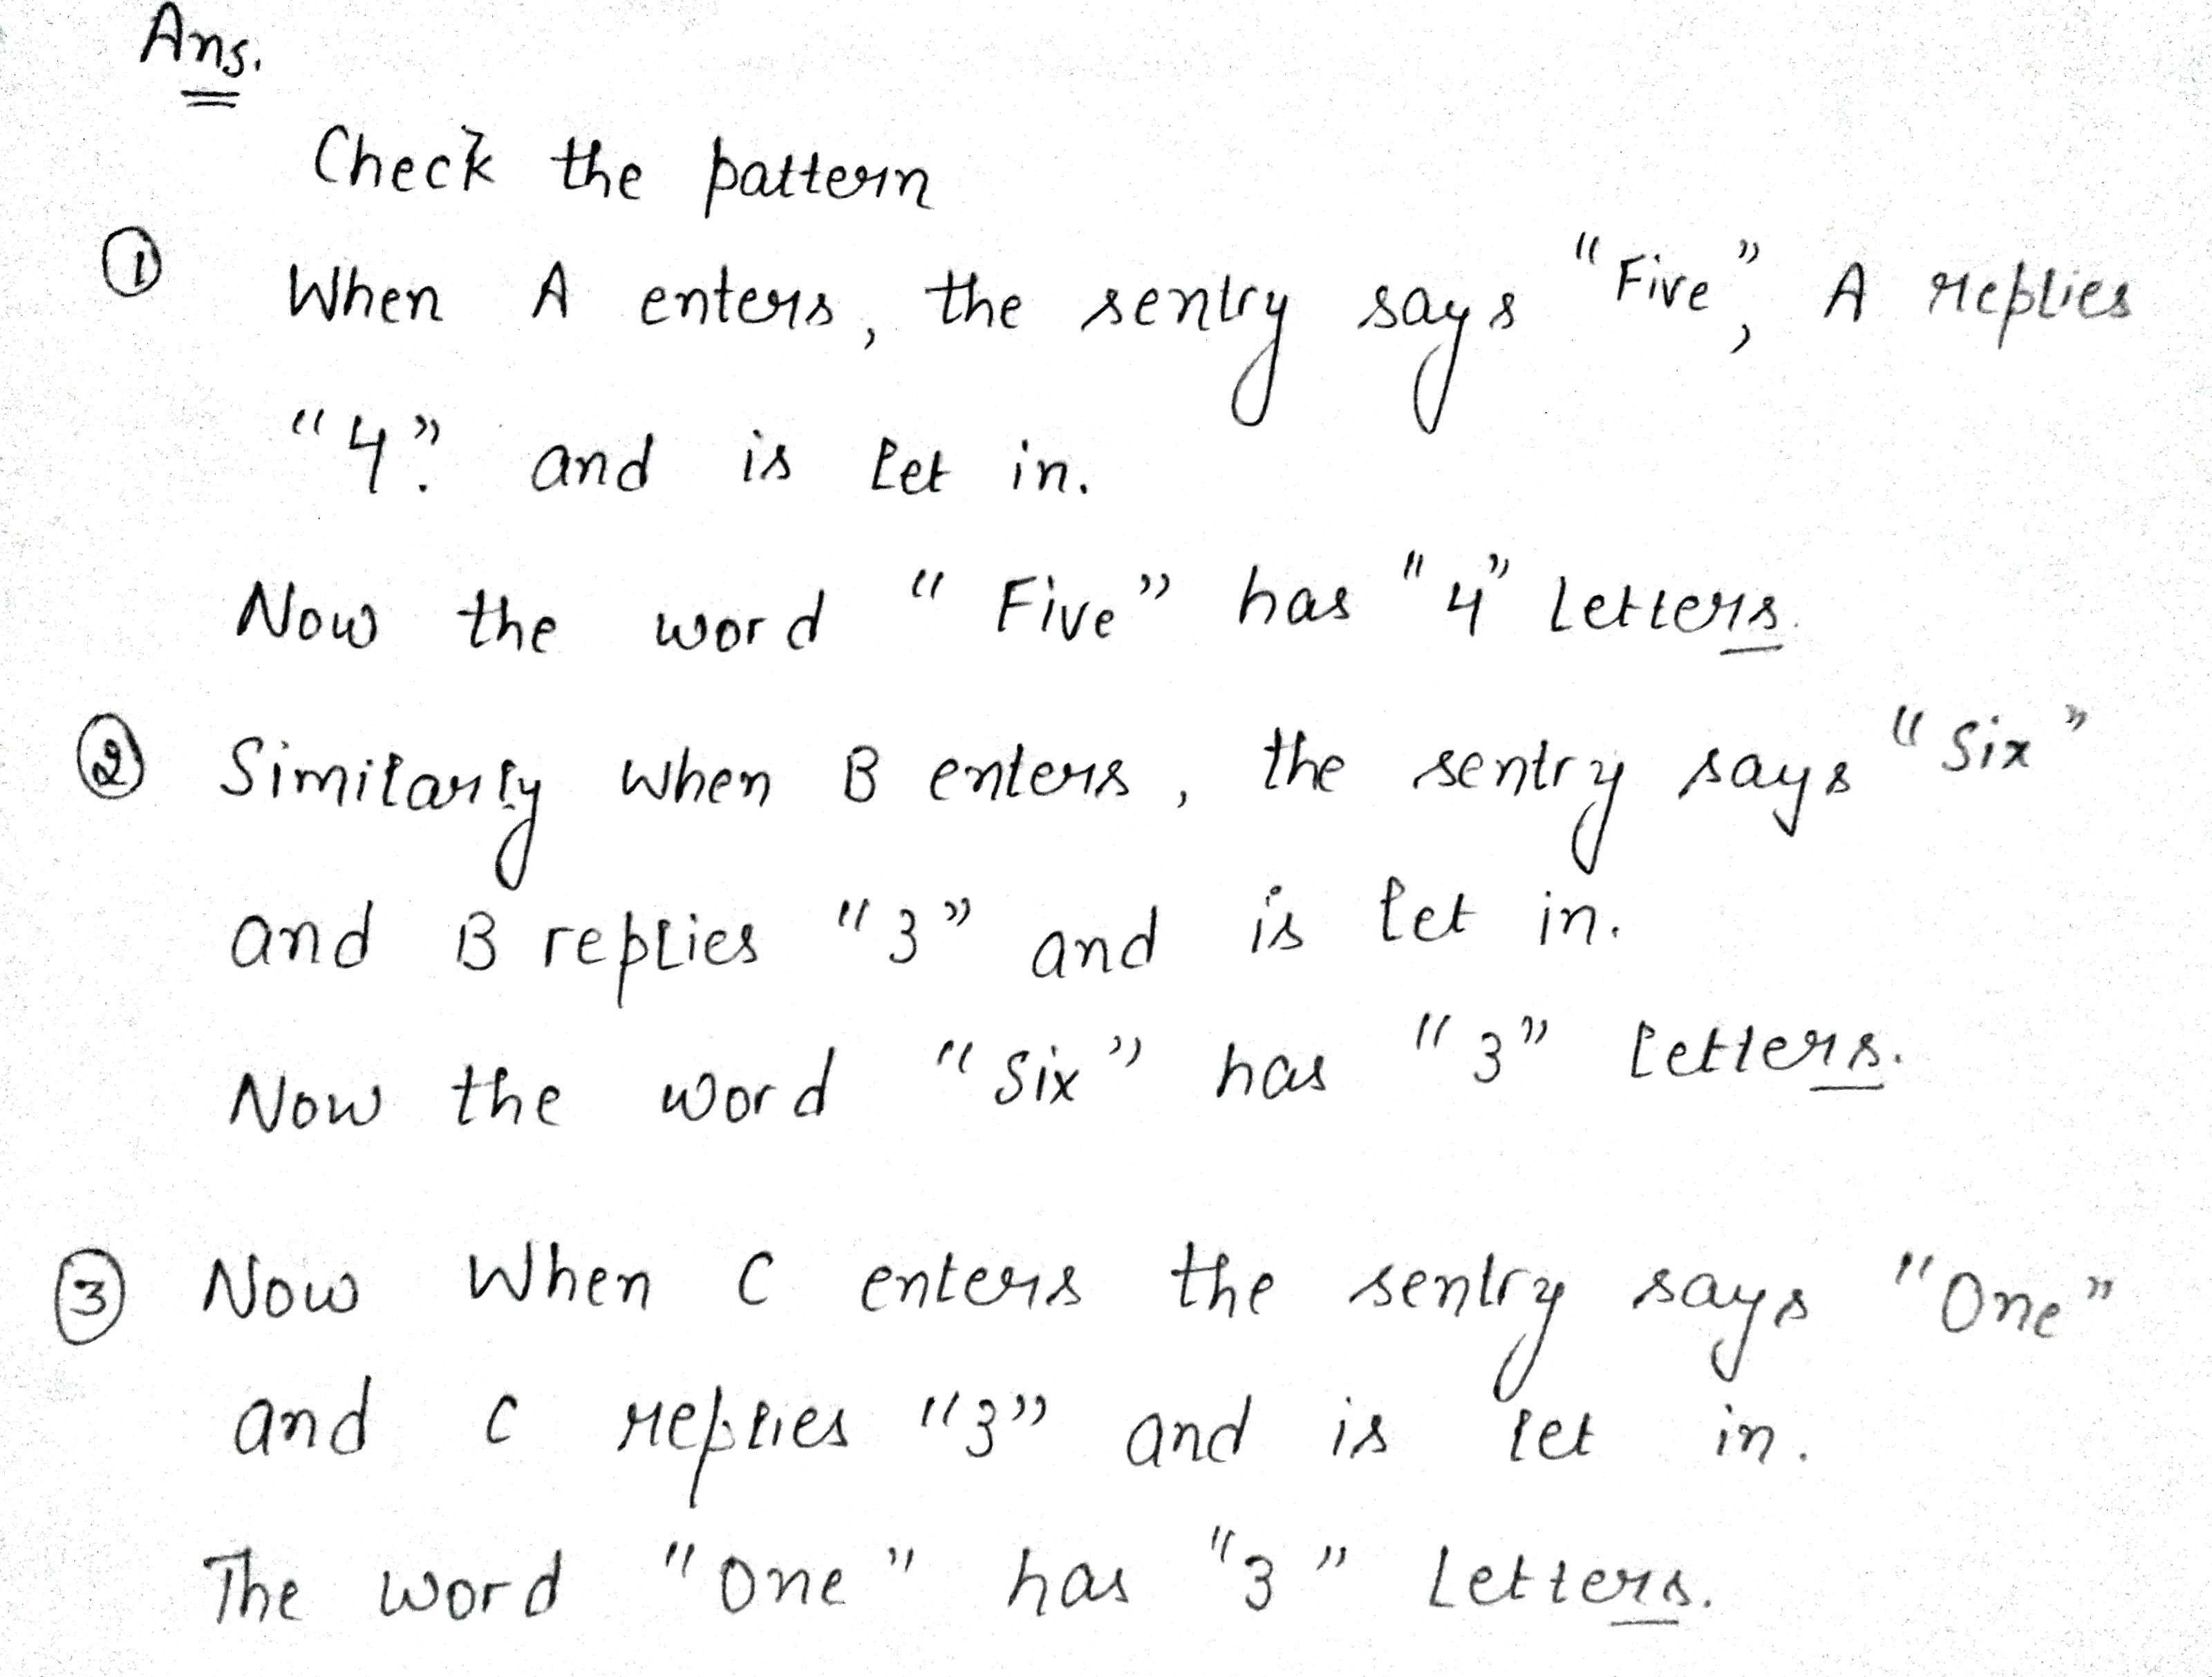 Ans.
Check the pattern
① When A enters, the sentry says "Five", A replies
"4". and is let in.
Now the word "Five" has "4" Letters.
② Similarly when B enters, the sentry says "Six"
and B replies "3" and is let in.
Now the word "Six" has "3" letters.
③ Now When C enters the sentry says "One"
and C replies "3" and is let in.
The word "One" has "3" Letters.